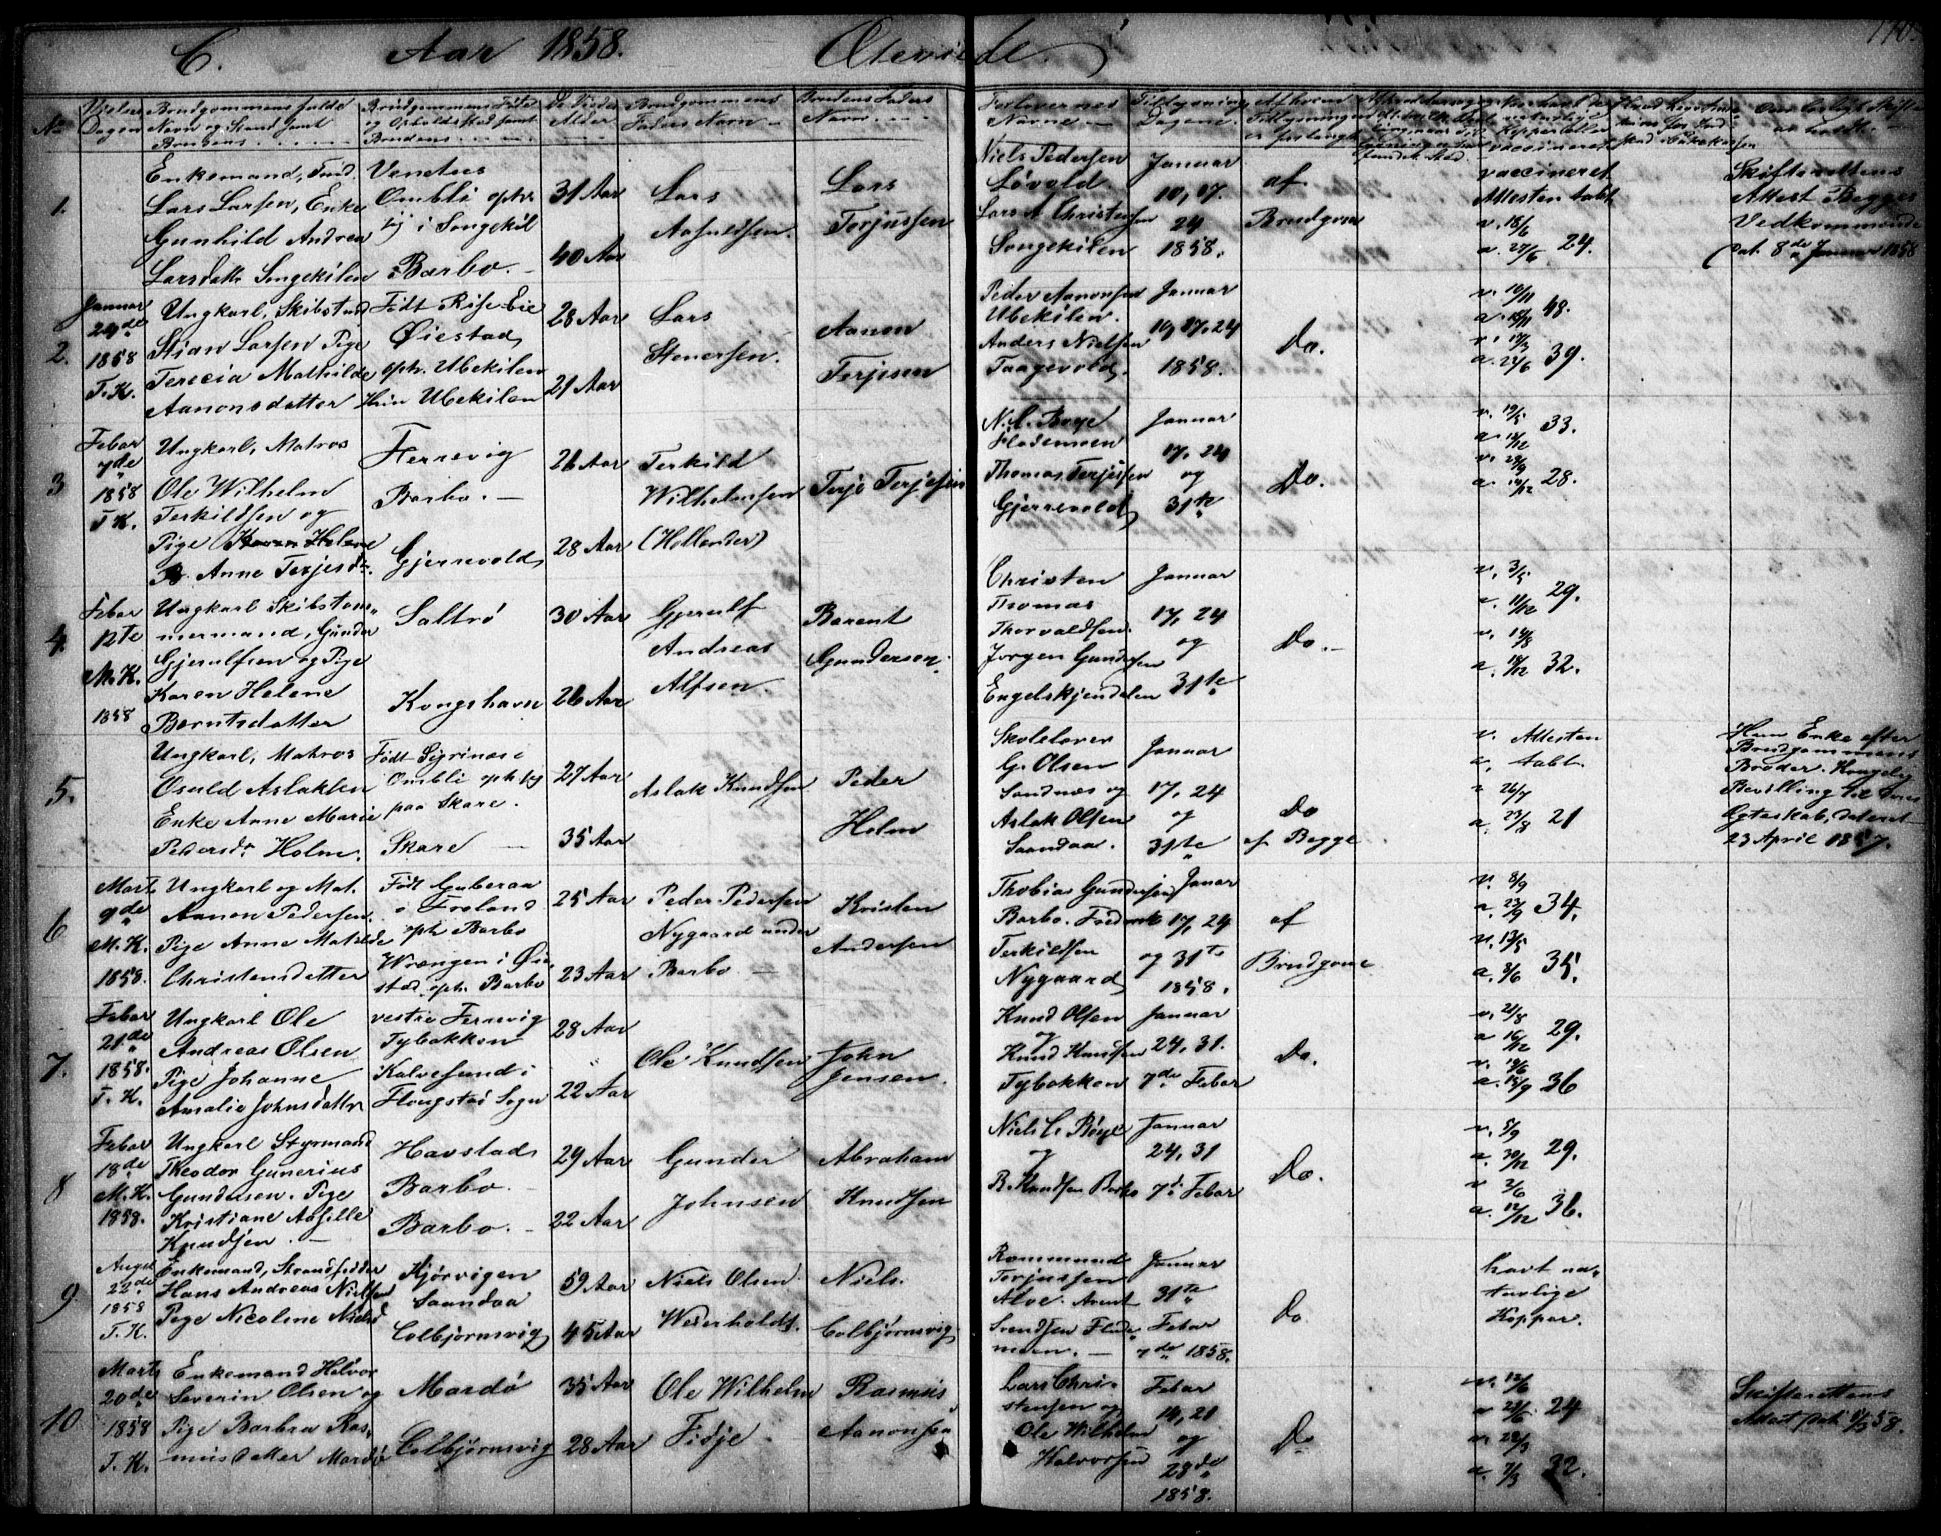 C. Aar 1858. Ølevide.
170.
No
Vielses Dagen
Brudgommens fulde Navn og Stand samt Brudens
De Viedes Alder
Brudgommens Faders Navn
Brudens Faders Navn
Forlovernes Navne
Tillysnings Dagene
1.
Enkemand,
Lars Larsen, Enke
Gunhild Andrea
Larsdatter Songekilen
Ombli oph.
i Songekil
Barbo.
31 Aar
40 Aar
Lars
Lars
Torjussen
Niels Pedersen
Løvold
Lars A Christensen
Songekilen
Januar
10, 17.
24
1858.
af
Brudgom
vaccineret
Attesten tabt
v. 18/6
a. 27/6 24.
Skifterettens
Attest Begges
Vedkommende
Dat. 8de Januar 1858
2.
Januar
24de
1858
T. K.
Ungkarl, Skibstmd
Stian Larsen Pige
Terecia Mathilde
Aanonsdatter
Født Rise Eie
Øiestad
oph. Ubekilen
Hun Ubekilen
28 Aar
21 Aar
Lars
Stenersen.
Aanon
Terjesen
Peder Aanonsen
Ubekilen.
Anders Nielsen
Taagevold.
Januar
10, 17, 24
1858.
Do.
v. 10/11
a. 18/11 48.
a. 24/6 39.
3
Febar
7de
1858
T. K.
Ungkarl, Matros
Ole Wilhelm
Terkildsen og
Pige Karen Helene
Anne Terjesdr.
Ferrevig
Barbo.
Gjerrevold
26 Aar
28 Aar
Terkild
Wilhelmsen
(Hollender)
Terje Terjesen
N. C. Boye
Flodemoen
Thomas Terjesen
Gjerrevold
Januar
17, 24
og
31te
Do.
v. 19/5
a. 14/12 33.
v. 29/9
a. 14/12 28.
4.
Febar
12te
M. K.
1858
Ungkarl Skibstøm-
mermand, Gunder
Gjerulfsen og Pige
Karen Helene
Berntsdatter
Saltrø
Kongshavn
30 Aar
26 Aar
Gjerulf
Andreas
Alfsen.
Barent
Gundersen.
Christen
Thomas
Thorvaldsen.
Jørgen Gundersen
Engelskjendalen
Januar
17, 24
og
31te
Do.
v. 3/5
a. 11/12 29.
a. 18/12 32.
5.
Ungkarl, Matros
Osuld Aslaksen
Enke Anne Marie
Pedersdr Holm.
Ombli oph.
paa Skare.
Skare
27 Aar
35 Aar
Aslak Knudsen
Peder
Holm
Skolelærer
G. Olsen
Sandnæs og
Aslak Olsen
Saandaa.
Januar
17, 24
og
31te
Do
af Begge
v. Attesten
a. tabt.
v 26/7
a. 23/8 21
Hun Enke efter
Brudgommens
Broder. Kongelig
Bevilling til
Egteskab, dateret
23 April 1857.
6
Marts
9de
M. K.
1858.
Ungkarl og Mat.
Aanon Pedersen.
Pige Anne Matilde
Christensdatter
Født
i Froland
oph Barbo
Wrængen i Øie-
stad, oph. Barbo
25 Aar
23 Aar
Peder Pedersen
Nygaard under
Barbo
Kristen
Andersen
Thobias Gundersen
Barbo. Fredrik
Terkildsen
Nygaard
Januar
17, 24
og 31te
1858.
af
Brudgom
v. 8/9
a. 23/9 34.
v. 13/5
a. 3/6 35.
7.
Febar
21de
1858.
T. K.
Ungkarl Ole
Andreas Olsen
Pige Johanne
Amalie Johnsdatter
vestre Ferrevig
Tybakken
Kalvesund i
Flougstad Sogn
28 Aar
22 Aar
Ole Knudsen
John
Jensen.
Knud Olsen
og
Knud Knudsen
Tybakken
Januar
24, 31.
7de Febar
Do.
v. 21/8
a 16/12 29.
v. 19/6
a. 18/9 36
8
Febar
18de
M. K.
1858.
Ungkarl Styrmand
Theodor Gunerius
Gundersen. Pige
Kristiane Assille
Knudsen.
Havstad
Barbo.
Barbo.
29 Aar
22 Aar
Gunder
Johnsen
Abraham
Knudsen
Niels C. Bøye
og
R. Knudsen Barbo
Januar
24, 31
7de Febar
Do.
v. 5/9
a. 30/12 29.
v 2/6
a. 12/12 36.
9
August
22de
1858
T. K.
Enkemand, Strandsidder
Hans Andreas Nielsen
Pige Nicoline Nielsd
Kjørvigen
Saandaa
Colbjørnsvig
59 Aar
45 Aar
Niels Olsen
Wederholdt.
Niels
Colbjørnsvig
Rommund
Terjussen
Alve. Arent
Svendsen Flade-
moen.
Januar
31te
Febar
7de 1858.
Do
havt na-
turlige
Kopper.
10
Marts
20de
1858
T. K.
Enkemand Halvor
Severin Olsen og
Pige Barbra Ras-
musdatter Mardø
Mardø
Colbjørnsvig
35 Aar
28 Aar
Ole Wilhelm
Fidje.
Rasmus
Aanonsen
Lars Chri-
stensen og
Ole Wilhelm
Halvorsen
Febar
14, 21
og
28de
1858.
Do
v. 12/6
a 23/6. 24
v. 28/3
a. 7/3 32.
Skifterettens
Attest dat. 9/3 58.